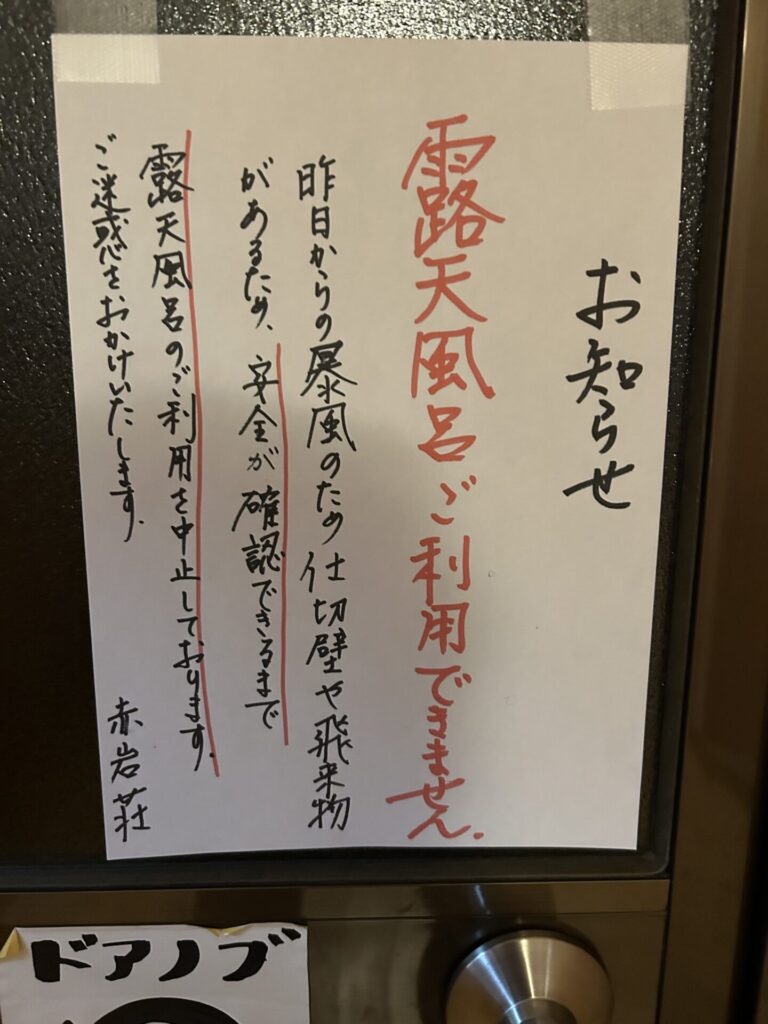 お知らせ
露天風呂ご利用できません.
昨日からの暴風のため仕切壁や飛来物
があるため、安全が確認できるまで
露天風呂のご利用を中止しております.
ご迷惑をおかけいたします.
赤岩荘
ドアノブ